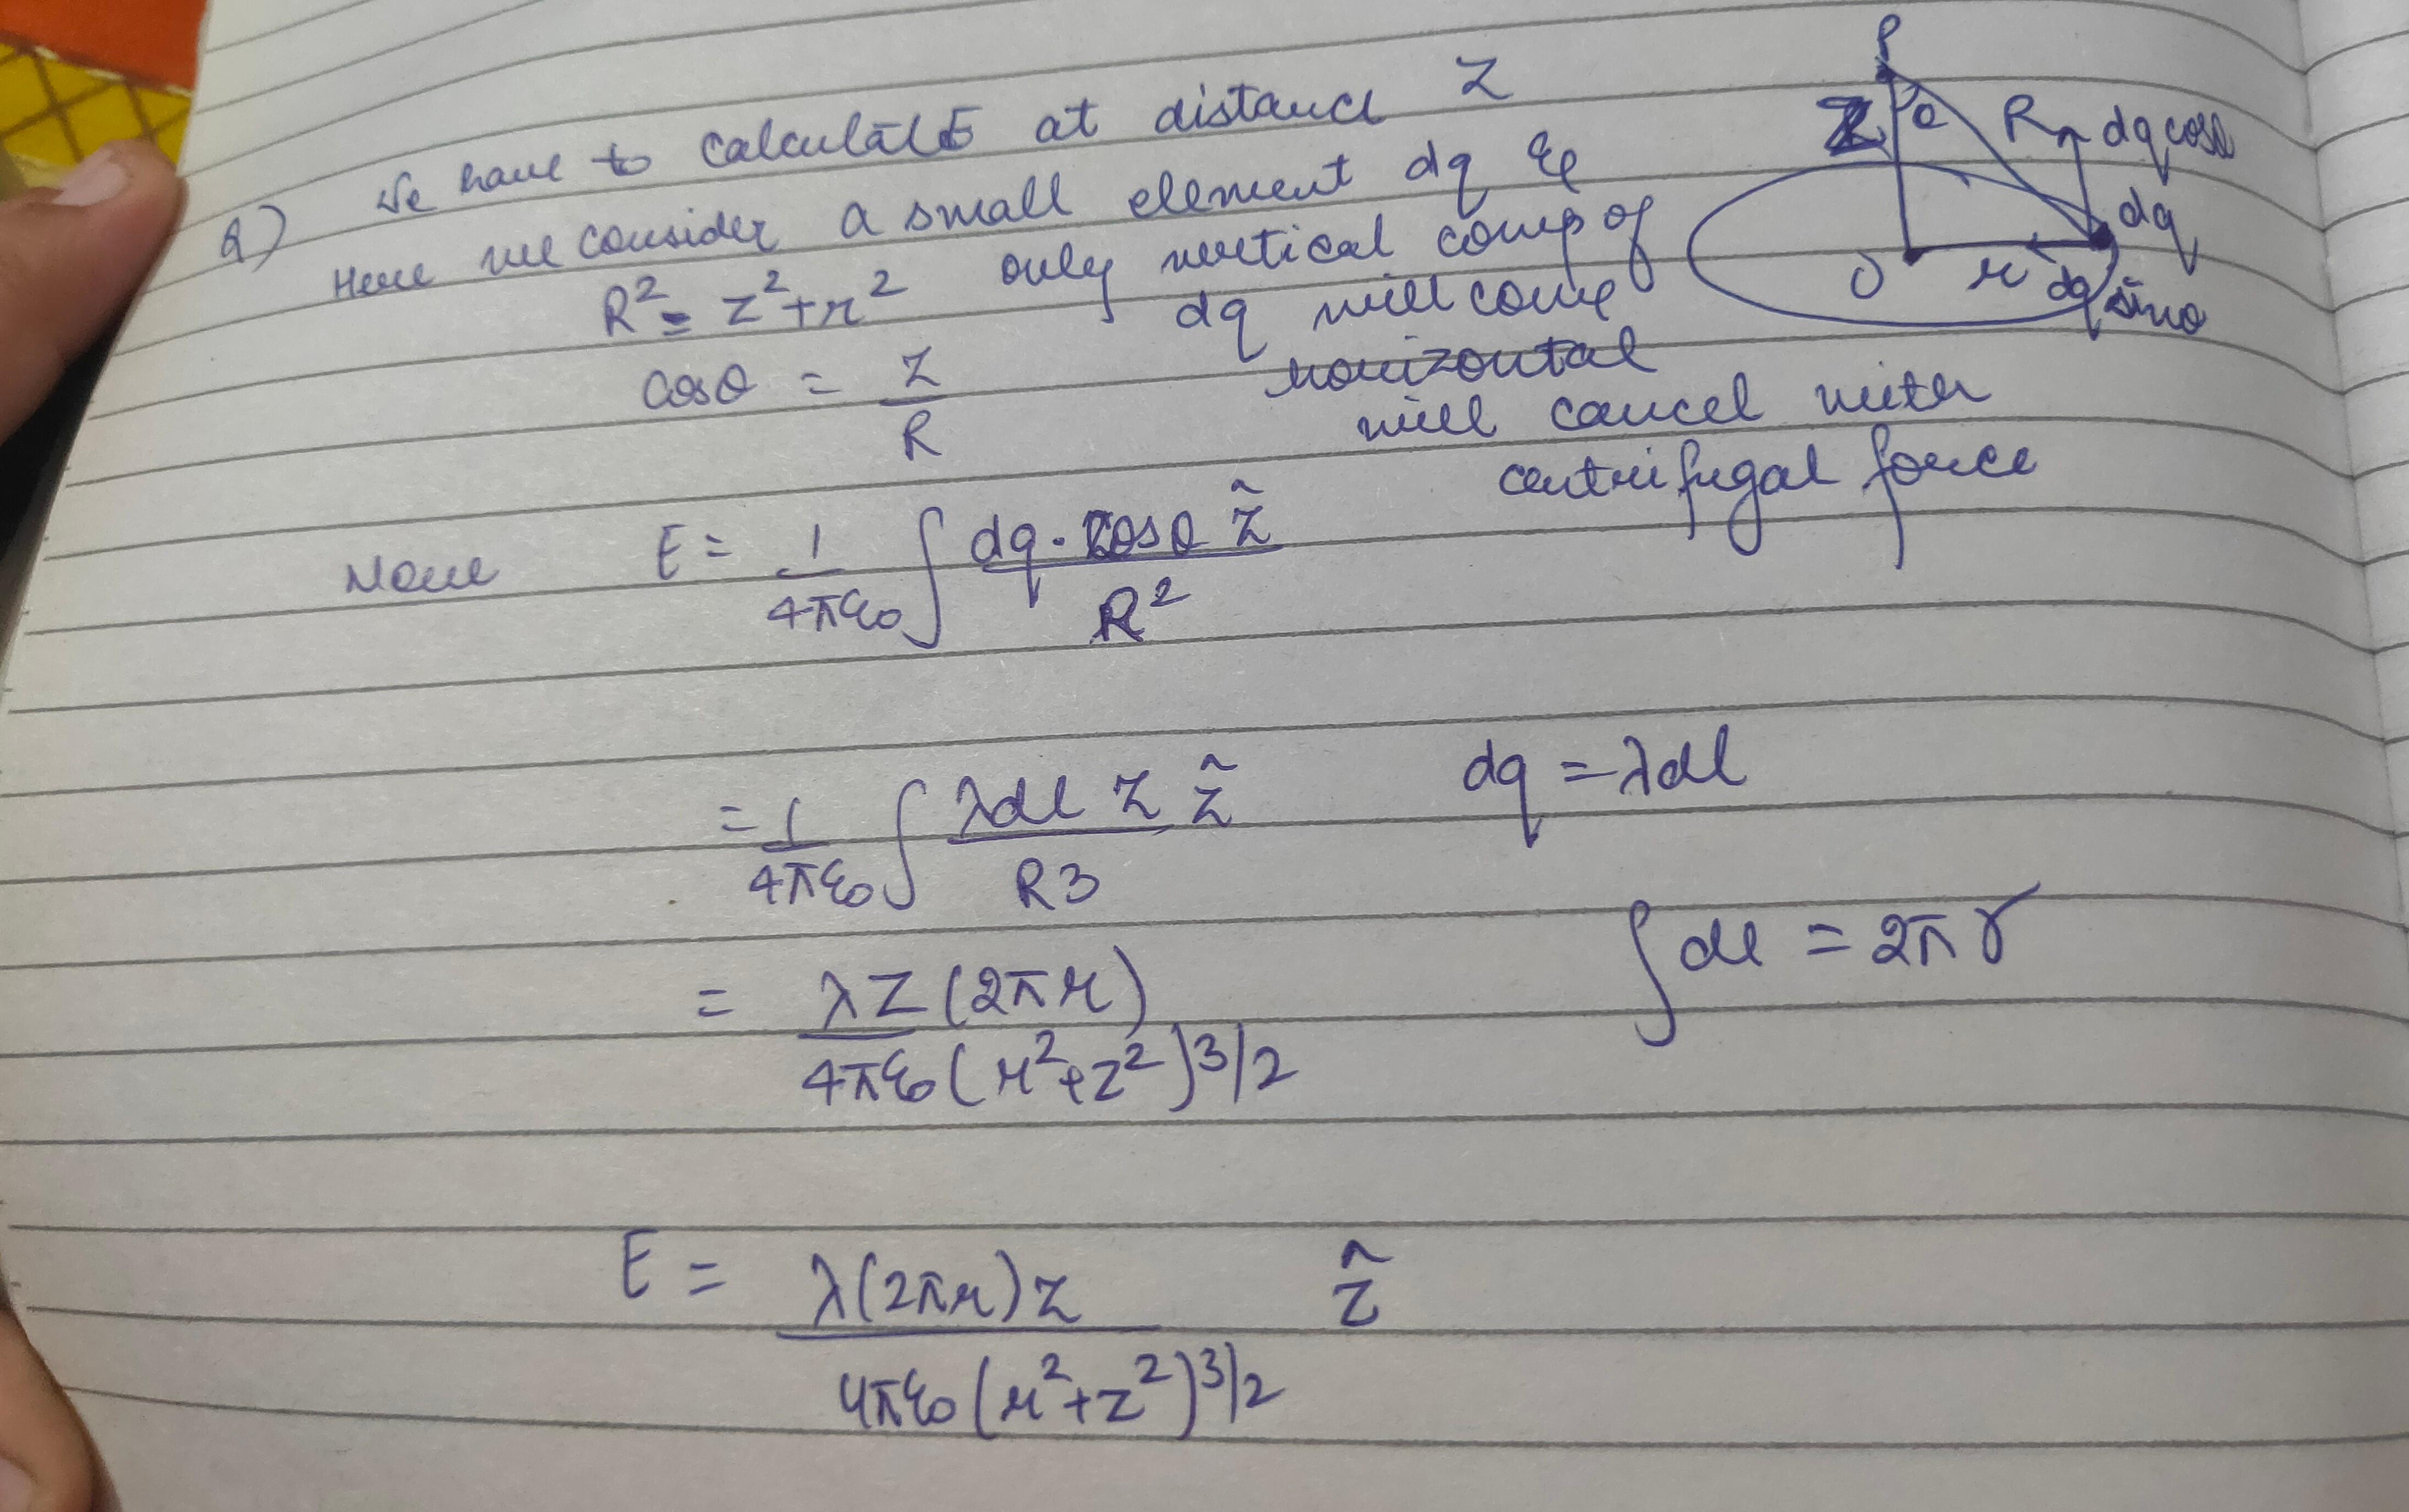 Q) We have to calculate E at distance Z
Here we consider a small element dq &
R² = z² + r² only vertical comp of
dq will come
cosθ = Z / R
horizontal
will cancel with
centrifugal force
Now E = 1/4πε₀ ∫ dq · cosθ ẑ / R²
= 1/4πε₀ ∫ λdl z ẑ / R3 dq = λdl
= λZ(2πr) / 4πε₀(r²+z²)3/2 ∫dl = 2πr
E = λ(2πr)z / 4πε₀(r²+z²)3/2 ẑ
P
Z θ R dq cosθ
dq
O r dq sinθ